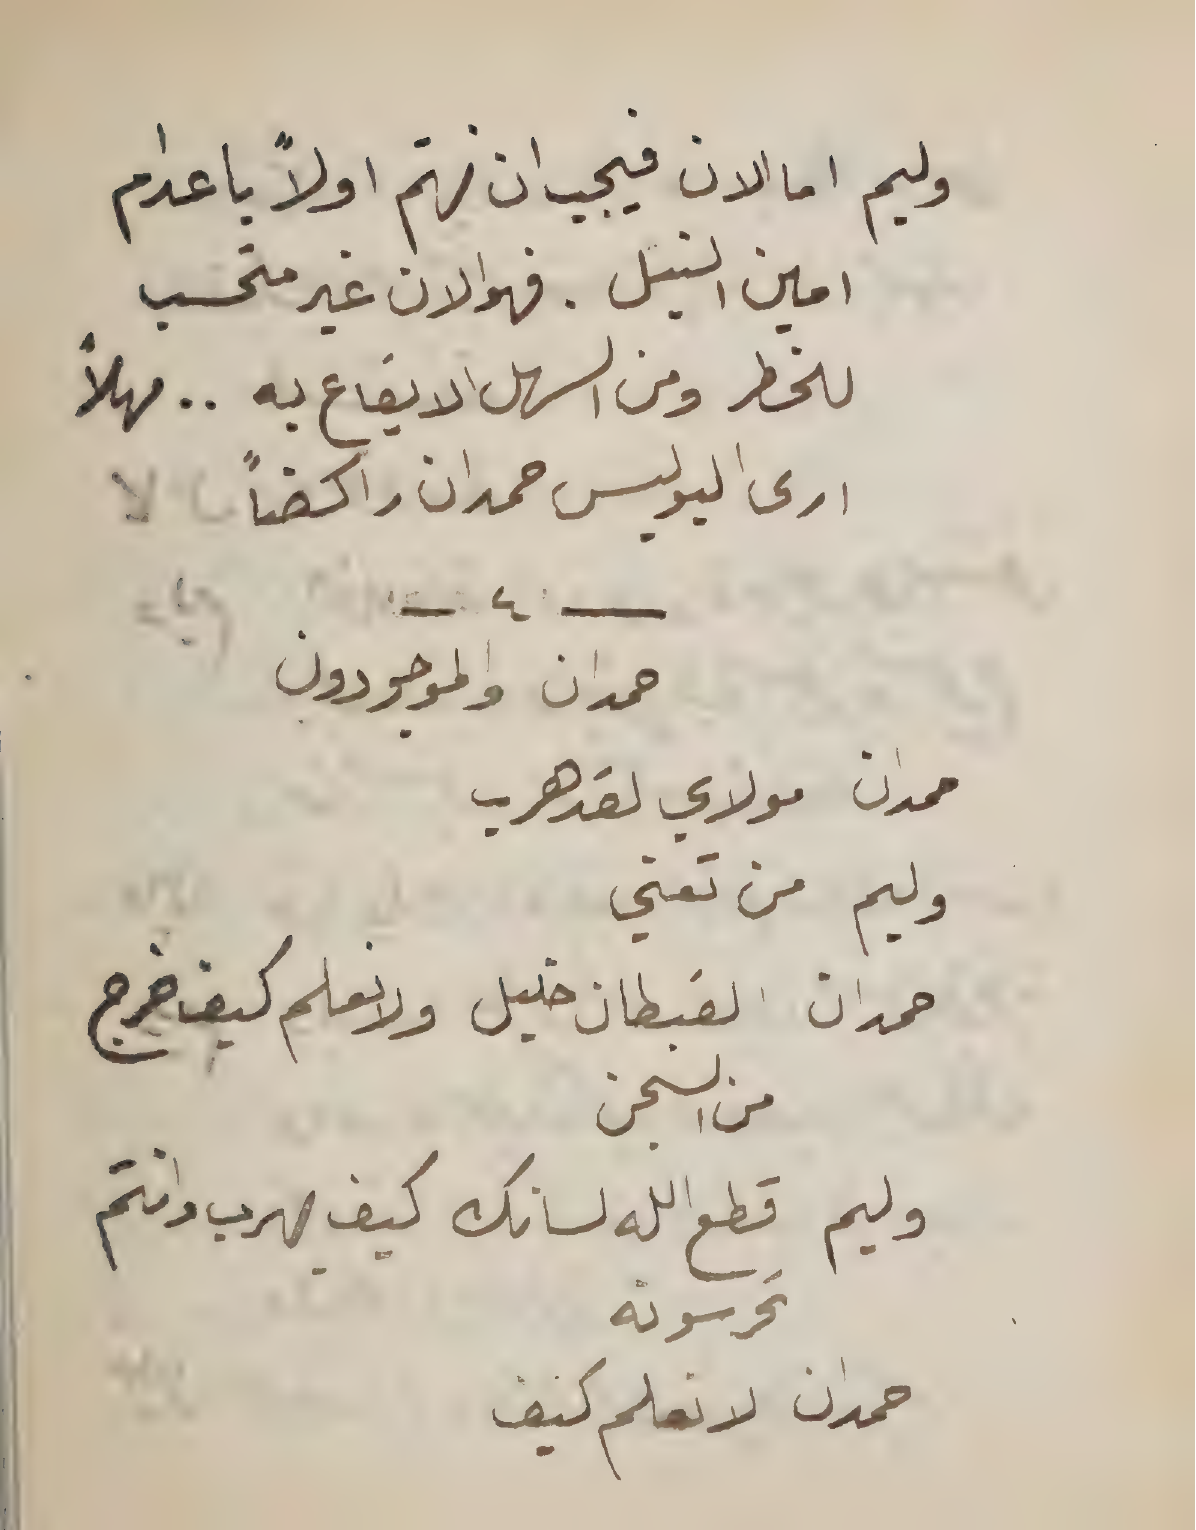 وليم اما الان فيجب ان نهتم اولاً باعدام
امين النيل . فهو الان غير متحسب
للخطر ومن السهل الايقاع به .. مهلاً
ارى البوليس حمدان راكضاً
— ٤ —
حمدان والموجودون
حمدان مولاي لقد هرب
وليم من تعني
حمدان القبطان خليل ولا نعلم كيف خرج
من السجن
وليم قطع الله لسانك كيف يهرب وانتم
تحرسونه
حمدان لا نعلم كيف